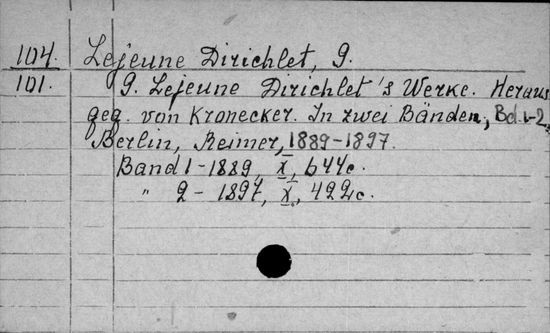 104. Lejeune Dirichlet, G.
101. G. Lejeune Dirichlet's Werke. Heraus
geg. von Kronecker. In zwei Bänden, Bd. 1-2.
Berlin, Reimer, 1889-1897.
Band 1 - 1889, X, 644c.
" 2 - 1897, X, 422c.